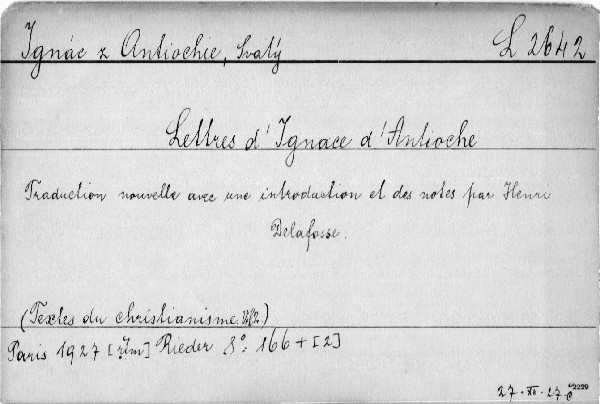 Ignác z Antiochie, Svatý L 2642
Lettres d'Ignace d'Antioche
Traduction nouvelle avec une introduction et des notes par Henri
Delafosse.
(Textes du christianisme. )
Paris 1927 Rieder 8°. 166 + [2]
27 - XII - 27